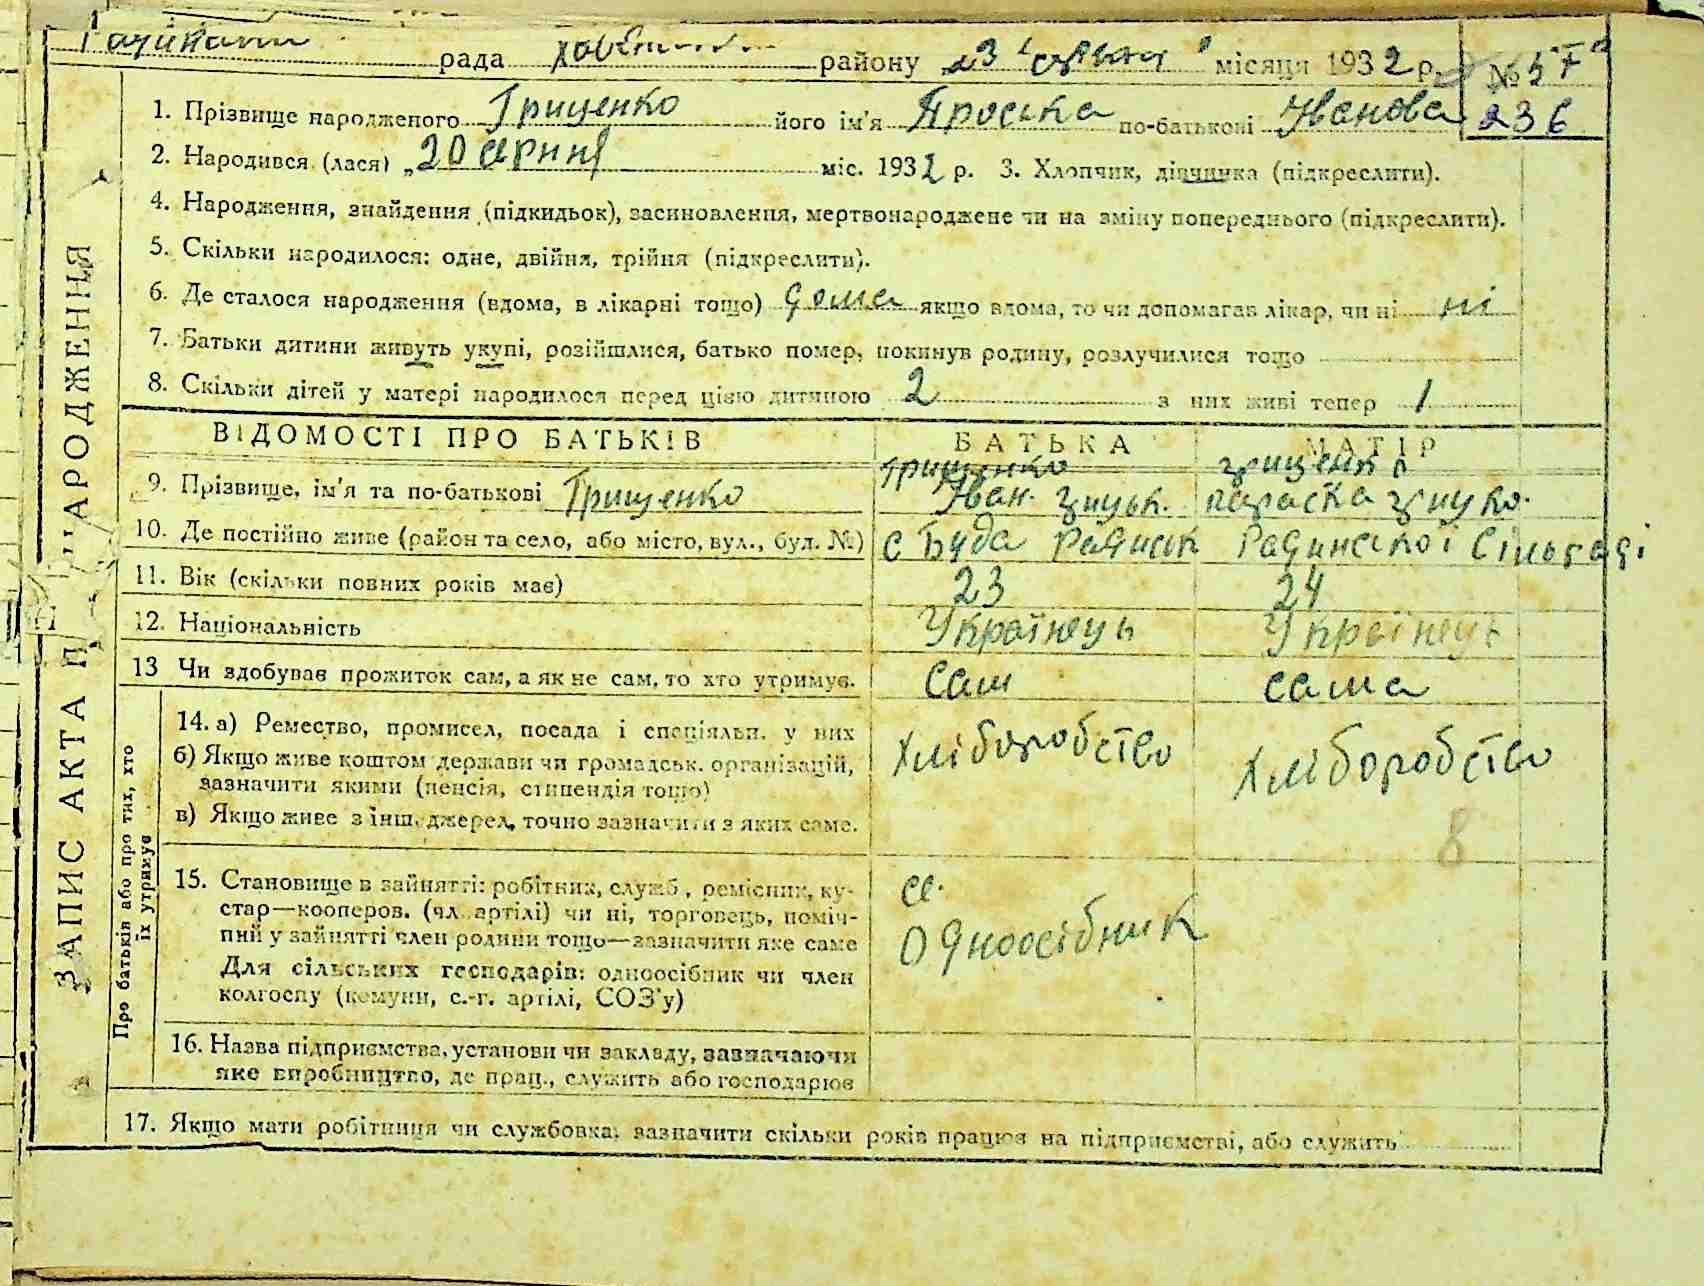 рада району 23 серпня місяця 1932 р. № 57
236
1. Прізвище народженого Грищенко його ім'я Проська по-батькові Іванова
2. Народився (лася) „20 серпня міс. 1932 р. 3. Хлопчик, дівчинка (підкреслити).
4. Народження, знайдення (підкидьок), засиновлення, мертвонароджене чи на зміну попереднього (підкреслити).
5. Скільки народилося: одне, двійня, трійня (підкреслити).
6. Де сталося народження (вдома, в лікарні тощо) дома якщо вдома, то чи допомагав лікар, чи ні ні
7. Батьки дитини живуть укупі, розійшлися, батько помер, покинув родину, розлучилися тощо
8. Скільки дітей у матері народилося перед цією дитиною 2 з них живі тепер 1
ЗАПИС АКТА П НАРОДЖЕННЯ
ВІДОМОСТІ ПРО БАТЬКІВ БАТЬКА МАТІР
9. Прізвище, ім'я та по-батькові Грищенко Грищенко Іван. грицьк. грищенко параска грицко.
10. Де постійно живе (район та село, або місто, вул., буд. №) с Буда Радинськ Радинської Сільради
11. Вік (скільки повних років має) 23 24
12. Національність Українець Українець
13 Чи здобував прожиток сам, а як не сам, то хто утримує. Сам сама
Про батьків або про тих, хто
їх утримує
14. а) Ремество, промисел, посада і спеціяльн. у них Хліборобство Хліборобство
б) Якщо живе коштом держави чи громадськ. організацій,
зазначити якими (пенсія, стипендія тощо)
в) Якщо живе з інш. джерел, точно зазначити з яких саме.
8
15. Становище в зайнятті: робітник, служб., ремісник, ку-
стар—кооперов. (чл. артілі) чи ні, торговець, поміч-
ний у зайнятті член родини тощо—зазначити яке саме
Для сільських господарів: одноосібник чи член
колгоспу (комуни, с.-г. артілі, СОЗ'у)
Одноосібник
16. Назва підприємства, установи чи закладу, зазначаючи
яке виробництво, де прац., служить або господарює
17. Якщо мати робітниця чи службовка, зазначити скільки років працює на підприємстві, або служить